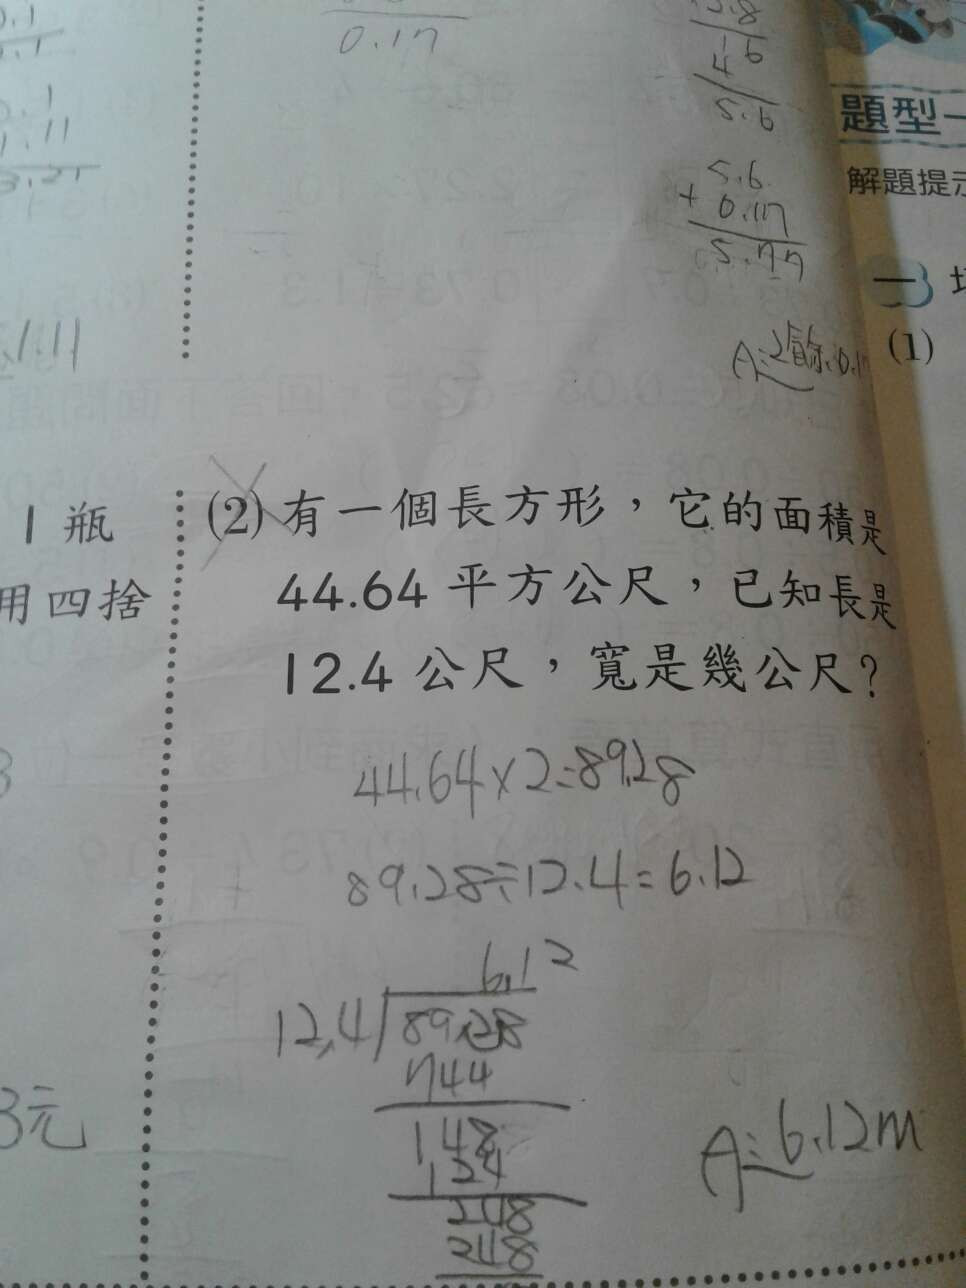 0.17
4.6
5.6
5.6
+ 0.17
5.77
題型一
解題提示
一
(1)
1.11
1 瓶
用四捨
(2) 有一個長方形，它的面積是
44.64 平方公尺，已知長是
12.4 公尺，寬是幾公尺？
44.64×2=89.28
89.28÷12.4=6.12
6.12
12.4 89.28
744
148
124
248
248
A:6.12m
3元